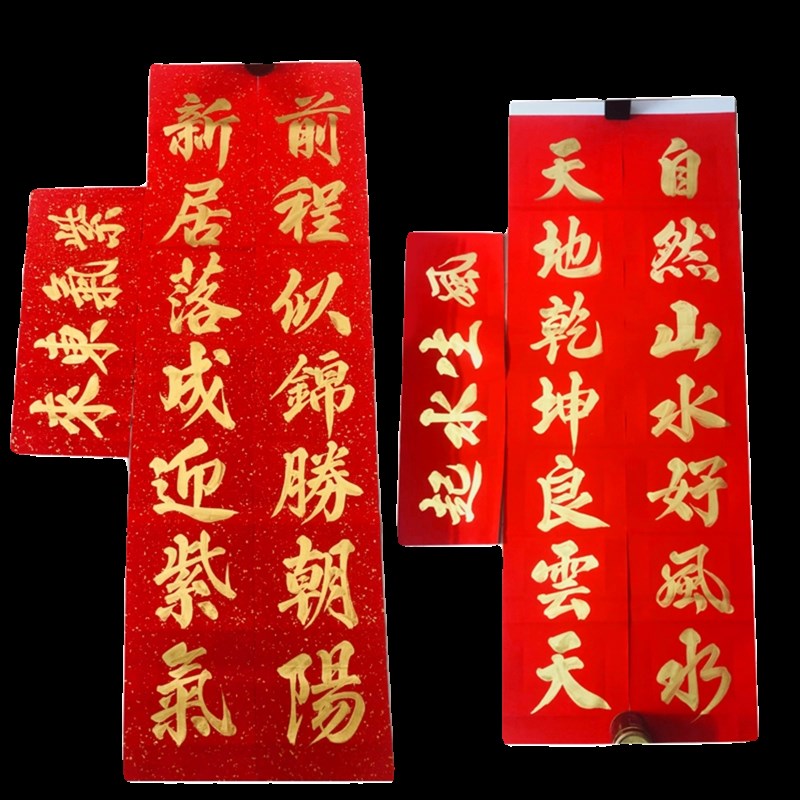 前程似錦勝朝陽
新居落成迎紫氣
紫氣東来
自然山水好風水
天地乾坤良雲天
風生水起